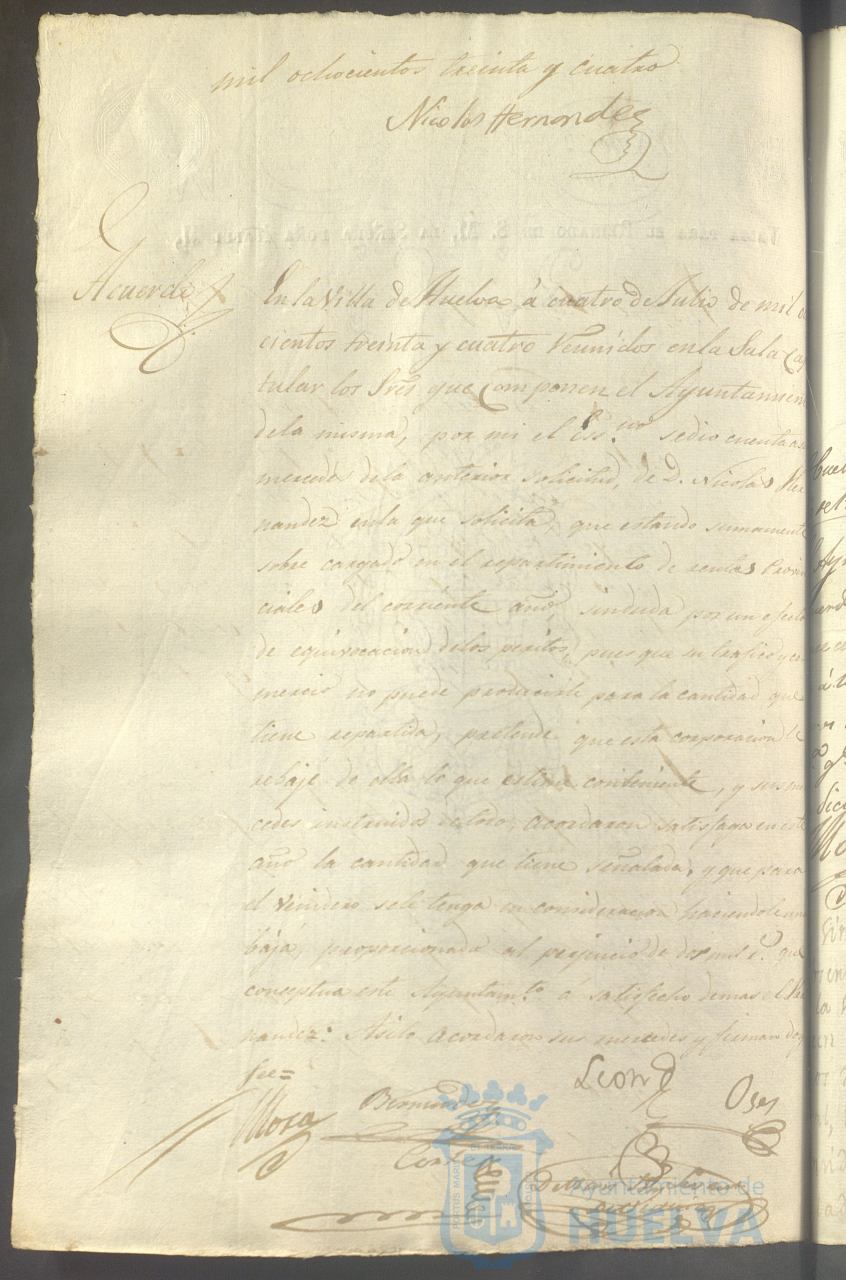 mil ochocientos treinta y cuatro
Nicolas Hernandez
Acuerdo
En la Villa de Huelva á cuatro de Julio de mil
cientos treinta y cuatro reunidos en la Sala Ca
tular los Sres. que componen el Ayuntamien
de la misma, por mi el Ess.no se dio cuenta a
mercedes de la anterior solicitud, de D. Nicolas Her
nandez en la que solicita, que estando sumamente
sobre cargado en el repartimiento de rentas Provin
ciales del corriente año, sin duda por un efecto
de equivocacion de los peritos, pues que su trafico y co
mercio no puede producirle para la cantidad que
tiene repartida, pretende que esta corporacion le
rebaje de ella lo que estime conveniente, y sus mer
cedes instruidos de todo, acordaron satisfaga en este
año la cantidad que tiene señalada, y que para
el venidero se le tenga en consideracion haciendole una
baja, proporcionada al perjuicio de dos mil r.s que
conceptua este Ayuntam.to á satisfecho demas el Her
nandez: Asi lo acordaron sus mercedes y firman doy
fee=
Mora Bermudez Leon Oses
Cortes
Ayuntamiento de
HUELVA